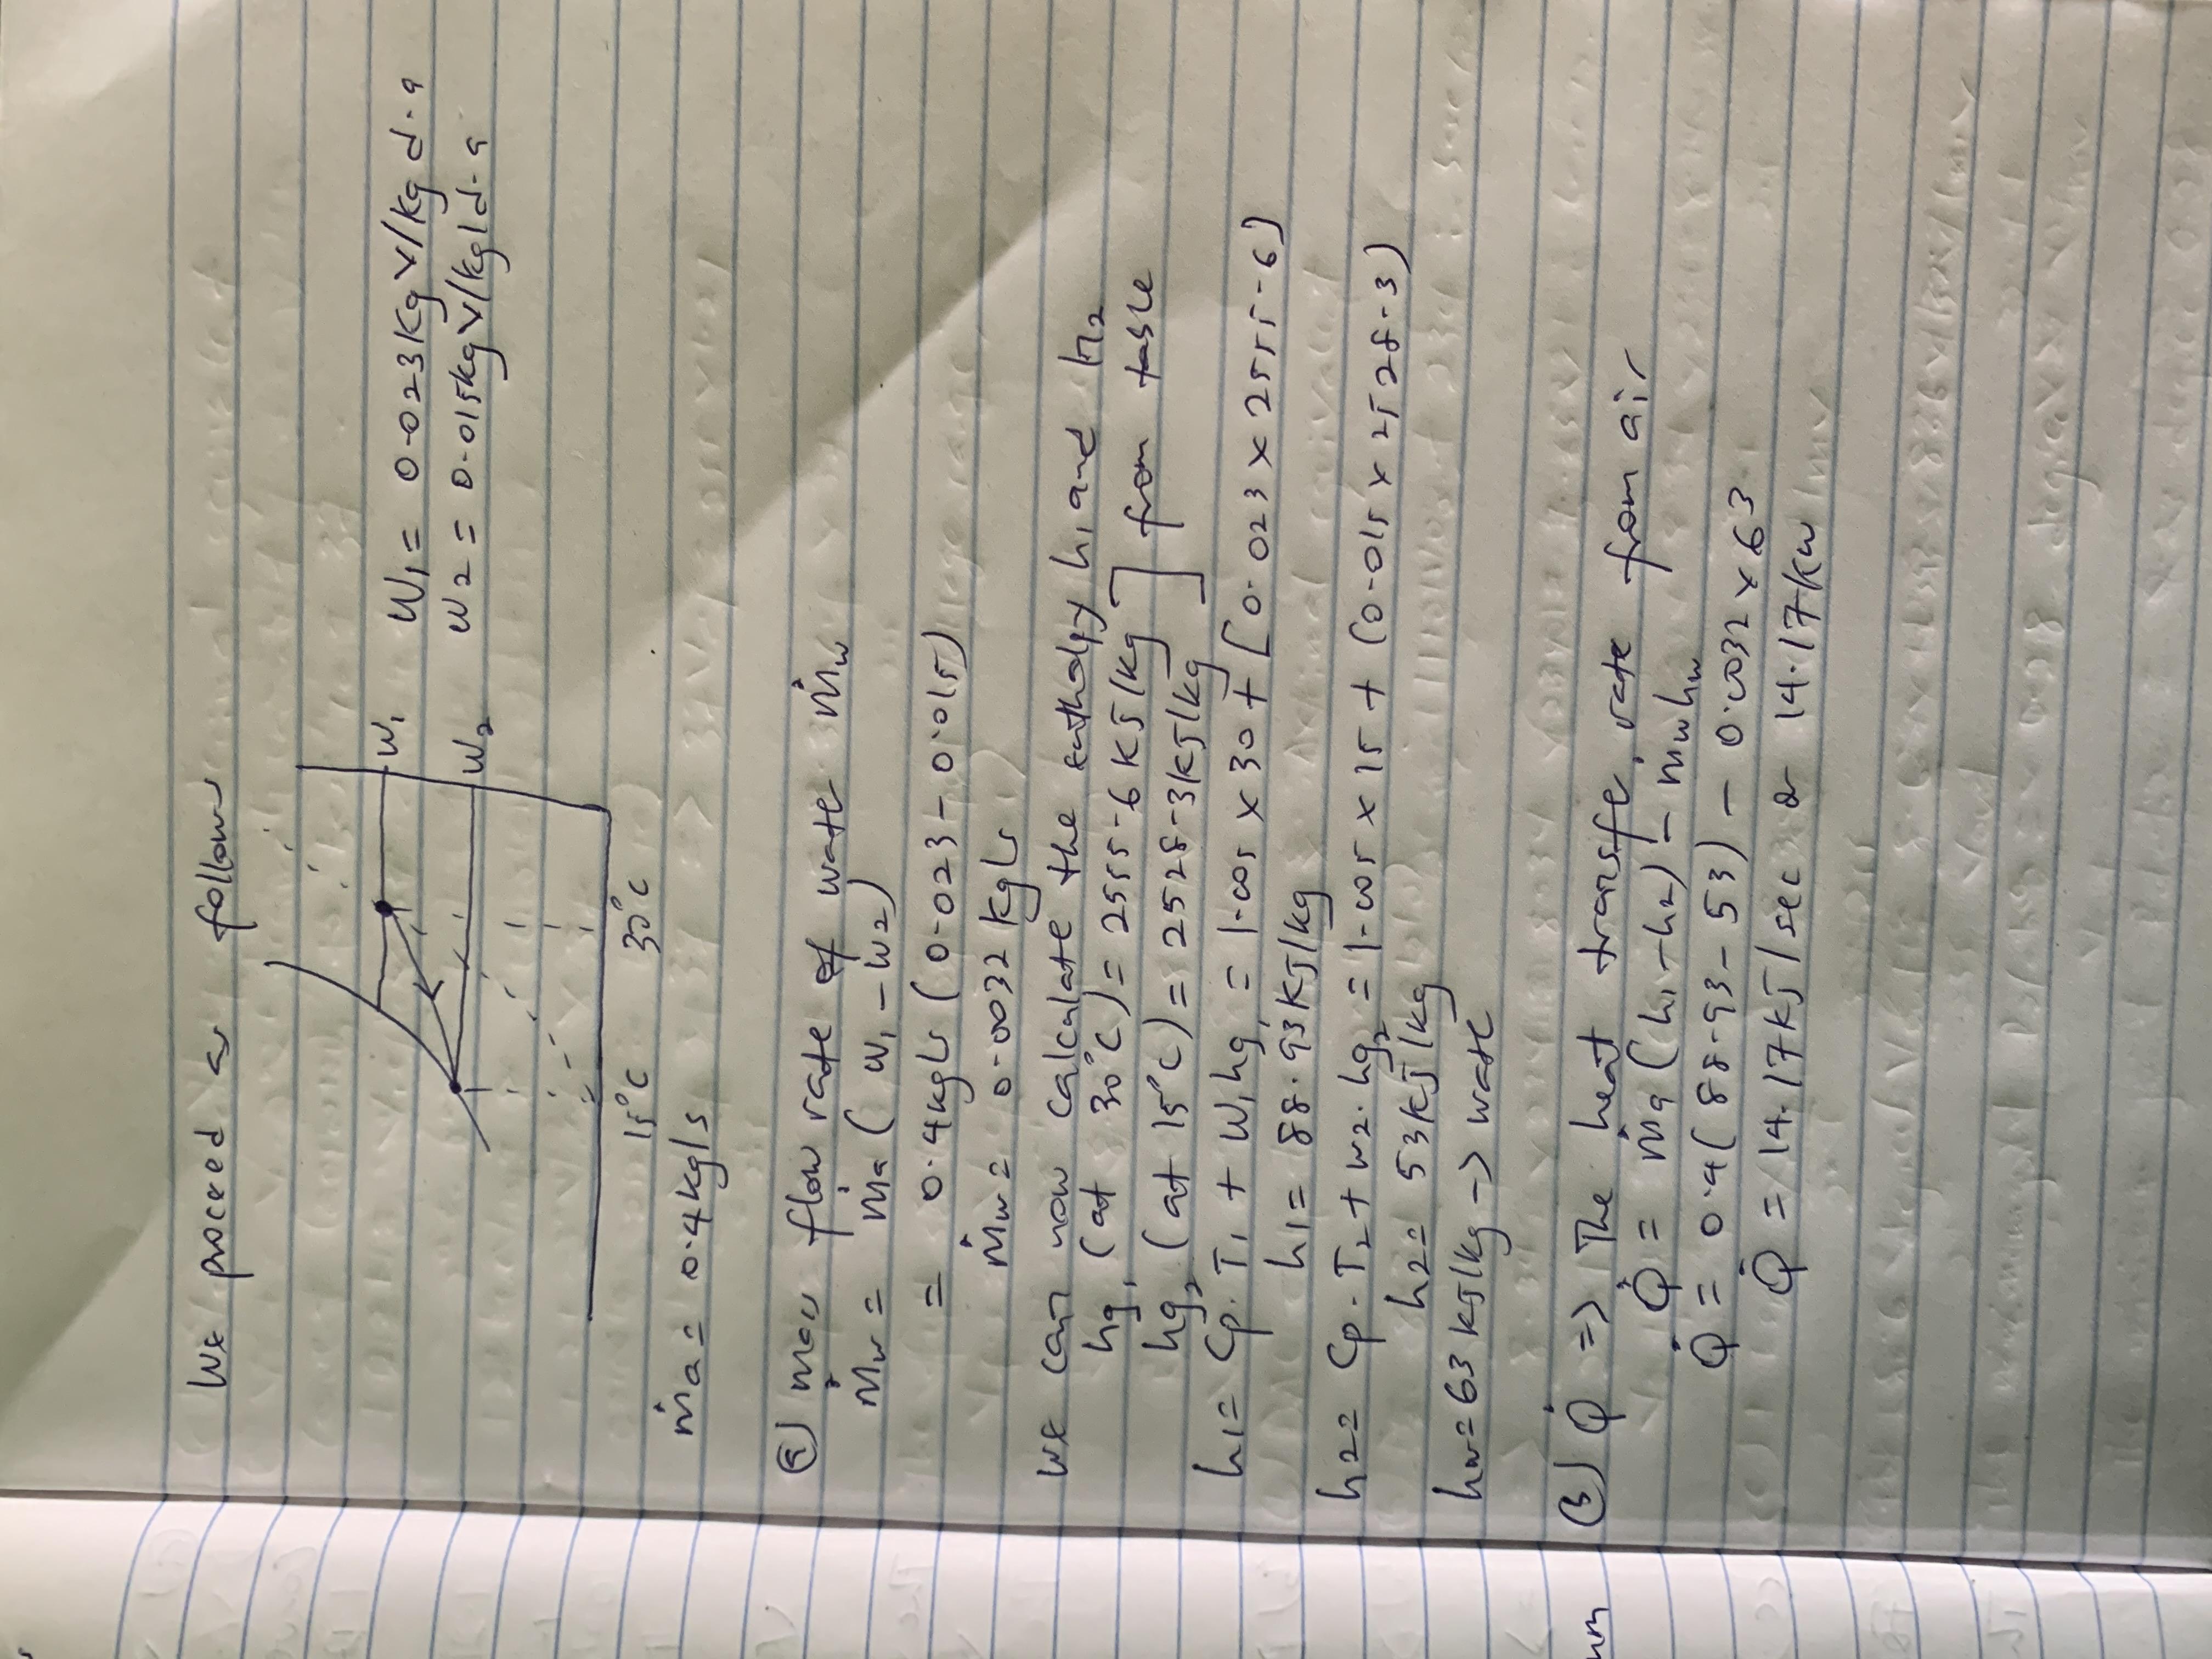 We proceed as follow
W₁ = 0.023kgv/kg d.a
W₂ = 0.015kgv/kg d.a
W₁
W₂
15°C 30°C
ṁa = 0.4kg/s
(a) mass flow rate of wate ṁw
ṁw = ṁa ( w₁ - w₂)
= 0.4kg/s (0.023 - 0.015)
ṁw = 0.0032 kg/s
we can now calculate the enthalpy h₁ and h₂
hg₁ (at 30°C) = 2555.6 kJ/kg ] from table
hg₂ (at 15°C) = 2528.3kJ/kg
h₁ = Cp. T₁ + W₁hg₁ = 1.005 x 30 + [0.023 x 2555.6)
h₁ = 88.93kJ/kg
h₂ = Cp. T₂ + w₂.hg₂ = 1.005 x 15 + (0.015 x 2528.3)
h₂ = 53kJ/kg
hw = 63 kJ/kg -> wate
(b) Q̇ => The heat transfe, rate from air
Q̇ = ṁa (h₁-h₂) - ṁwhw
Q̇ = 0.4 (88.93 - 53) - 0.0032 x 63
Q̇ = 14.17kJ/sec or 14.17kw